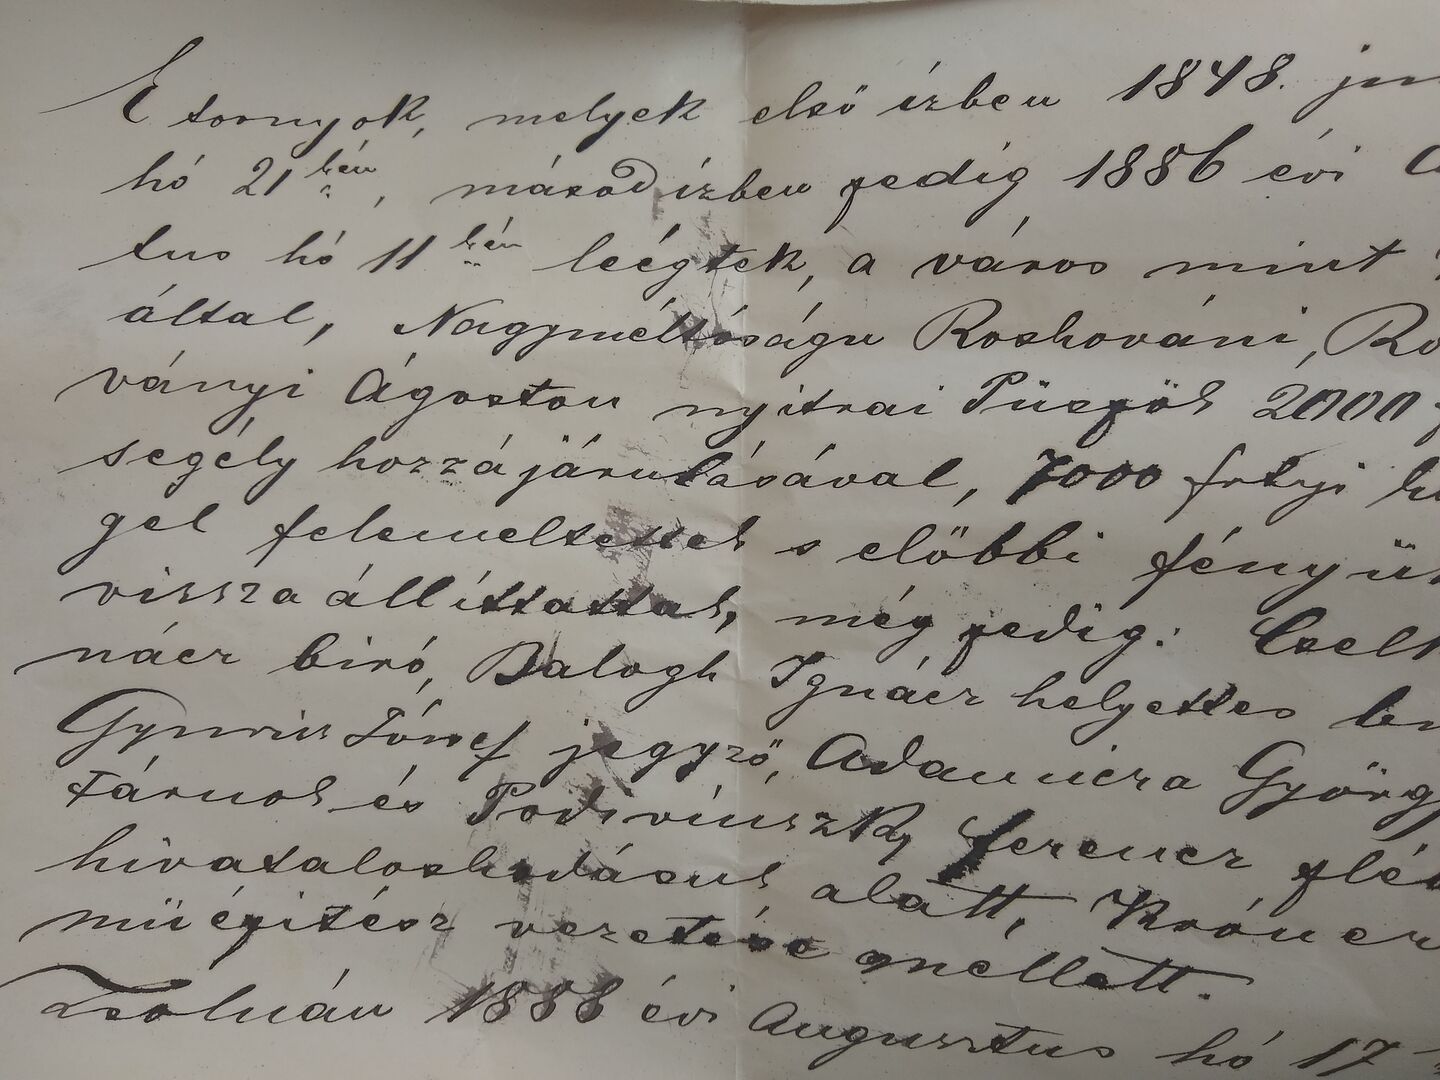 E tornyok, melyek első ízben 1848. jun
hó 21 kén, másod ízben pedig 1886 évi
tus hó 11 kén leégtek, a város mint
által, Nagyméltóságu Roskováni, Ro
ványi Ágoston nyitrai Püspök 2000 f
segély hozzájárulásával, 7000 frtnyi
gel felemeltettek s előbbi fényük
visszaállíttattak, még pedig: Cselk
nácz biró, Balogh Ignácz helyettes
József jegyző, Adamicza György
tárnok és Podivinszky Ferencz plé
hivataloskodásuk alatt,
müépitész vezetése mellett.
Zsolnán 1888 évi Augusztus hó 17